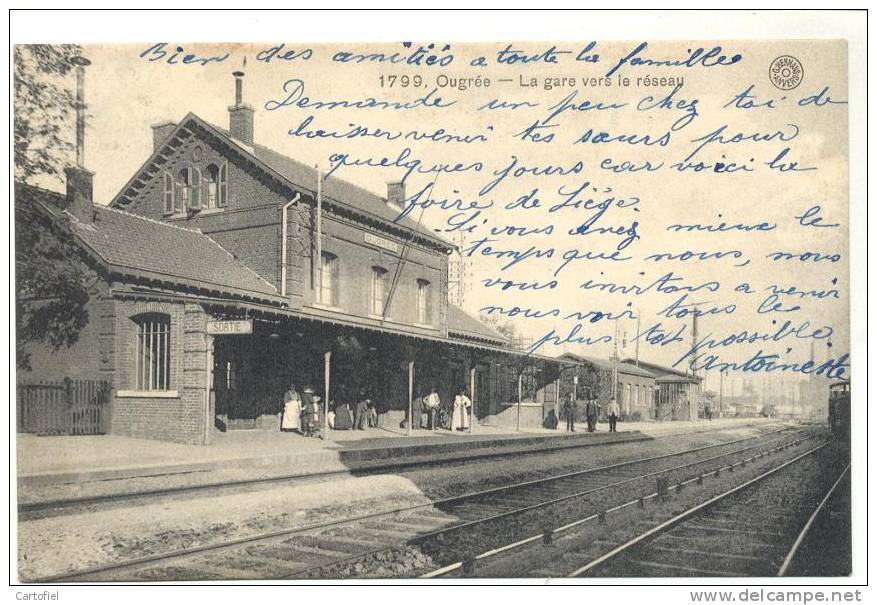 Bien des amitiés a toute la famille
1799. Ougrée — La gare vers le réseau
G. HERMANS ANVERS
Demande un peu chez toi de
laisser venir tes sœurs pour
quelques jours car voici la
foire de Liége.
Si vous avez mieux le
temps que nous, nous
vous invitons a venir
nous voir tous le
plus tot possible
Antoinette
SORTIE
Cartofiel
http://www.delcampe.net